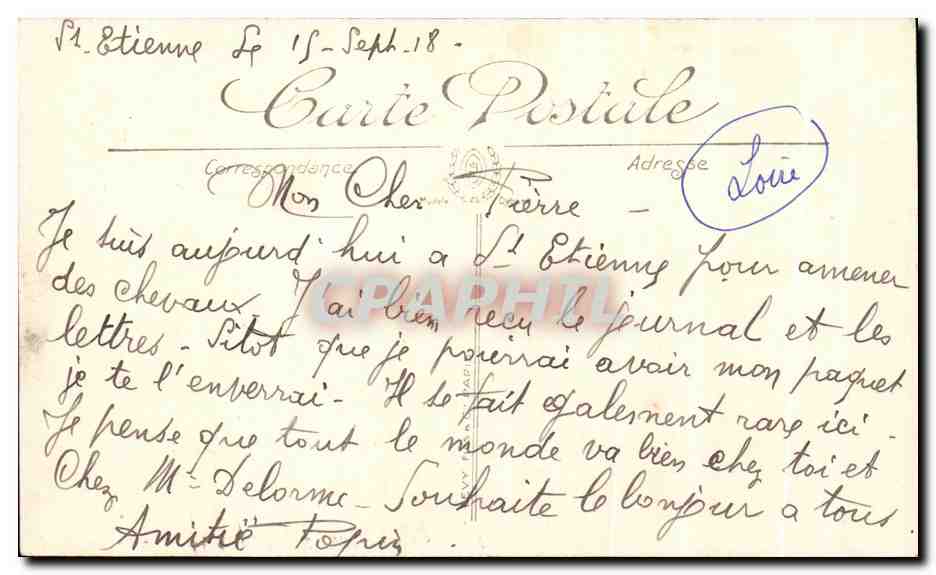 St-Etienne Le 15-Sept-18-
Carte Postale
Correspondance
Adresse
Loire
Mon Cher Pierre -
Je suis aujourd'hui a St Etienne pour amener
des chevaux, J'ai bien reçu le journal et les
lettres - Sitot que je pourrai avoir mon paquet
je te l'enverrai - Il se fait egalement rare ici -
Je pense que tout le monde va bien chez toi et
Chez Mr Delorme - Souhaite le bonjour a tous
Amitié
CPAPHIL